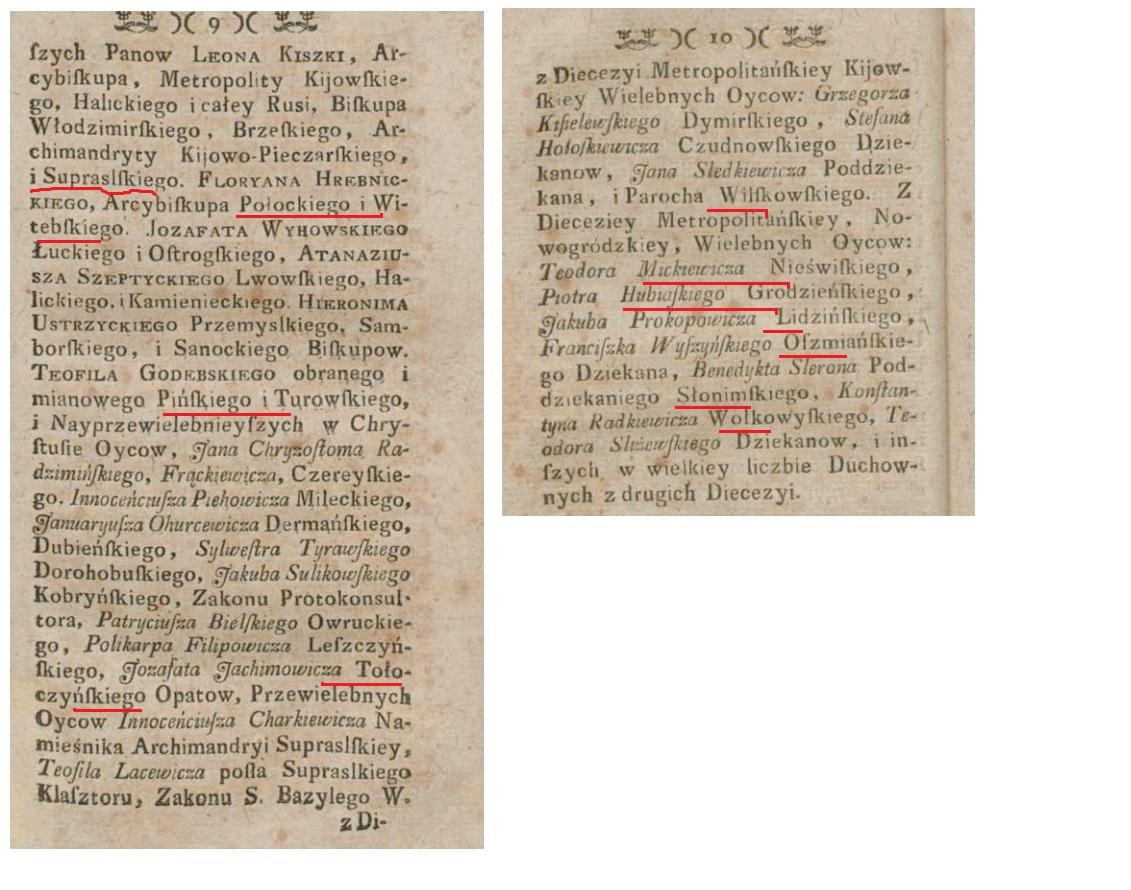 9
ſzych Panow LEONA KISZKI, Ar-
cybiſkupa, Metropolity Kijowſkie-
go, Halickiego i całey Rusi, Biſkupa
Włodzimirſkiego, Brzeſkiego, Ar-
chimandryty Kijowo-Pieczarſkiego,
i Supraslſkiego. FLORYANA HREBNIC-
KIEGO, Arcybiſkupa Połockiego i Wi-
tebſkiego. JOZAFATA WYHOWSKIEGO
Łuckiego i Oſtrogſkiego, ATANAZIU-
SZA SZEPTYCKIEGO Lwowſkiego, Ha-
lickiego, i Kamienieckiego. HIERONIMA
USTRZYCKIEGO Przemyslkiego, Sam-
borſkiego, i Sanockiego Biſkupow.
TEOFILA GODEBSKIEGO obranego i
mianowego Pińſkiego i Turowſkiego,
i Nayprzewielebnieyſzych w Chry-
ſtuſie Oycow, Jana Chryzoſtoma Ra-
dzimińſkiego, Frąckiewicza, Czereyſkie-
go. Innoceńciuſza Piehowicza Mileckiego,
Januaryuſza Ohurcewicza Dermańſkiego,
Dubieńſkiego, Sylweſtra Tyrawſkiego
Dorohobuſkiego, Jakuba Sulikowſkiego
Kobryńſkiego, Zakonu Protokonsul-
tora, Patryciuſza Bielſkiego Owruckie-
go, Polikarpa Filipowicza Leſzczyń-
ſkiego, Jozafata Jachimowicza Toło-
czyńſkiego Opatow, Przewielebnych
Oycow Innoceńciuſza Charkiewicza Na-
mieśnika Archimandryi Supraslſkiey,
Teofila Lacewicza poſla Supraslkiego
Klaſztoru, Zakonu S. Bazylego W.
z Di-
10
z Diecezyi Metropolitańſkiey Kijow-
ſkiey Wielebnych Oycow: Grzegorza
Kiſielewſkiego Dymirſkiego, Stefana
Hołoſkiewicza Czudnowſkiego Dzie-
kanow, Jana Sledkiewicza Poddzie-
kana, i Parocha Wilſkowſkiego. Z
Dieceziey Metropolitańſkiey, No-
wogródzkiey, Wielebnych Oycow:
Teodora Mickiewicza Nieświſkiego,
Piotra Hubiaſkiego Grodzieńſkiego,
Jakuba Prokopowicza Lidzińſkiego,
Franciſzka Wyſzyńſkiego Oſzmiańſkie-
go Dziekana, Benedykta Slerona Pod-
dziekaniego Słonimſkiego, Konſtan-
tyna Radkiewicza Wołkowyſkiego, Te-
odora Sliżewſkiego Dziekanow, i in-
ſzych w wielkiey liczbie Duchow-
nych z drugich Diecezyi.